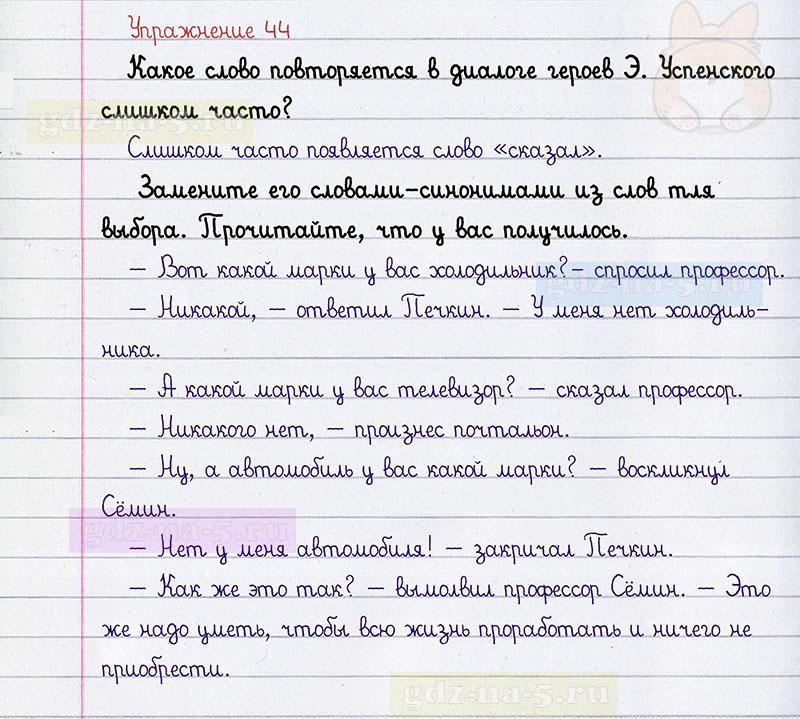 Упражнение 44
Какое слово повторяется в диалоге героев Э. Успенского
слишком часто?
gdz-na-5.ru
Слишком часто появляется слово «сказал».
Замените его словами-синонимами из слов тля
выбора. Прочитайте, что у вас получилось.
— Вот какой марки у вас холодильник? – спросил профессор.
gdz-na-5.ru
— Никакой, — ответил Печкин. — У меня нет холодиль-
ника.
— А какой марки у вас телевизор? — сказал профессор.
— Никакого нет, — произнес почтальон.
— Ну, а автомобиль у вас какой марки? — воскликнул
Сёмин.
gdz-na-5.ru
— Нет у меня автомобиля! — закричал Печкин.
— Как же это так? — вымолвил профессор Сёмин. — Это
же надо уметь, чтобы всю жизнь проработать и ничего не
приобрести.
gdz-na-5.ru